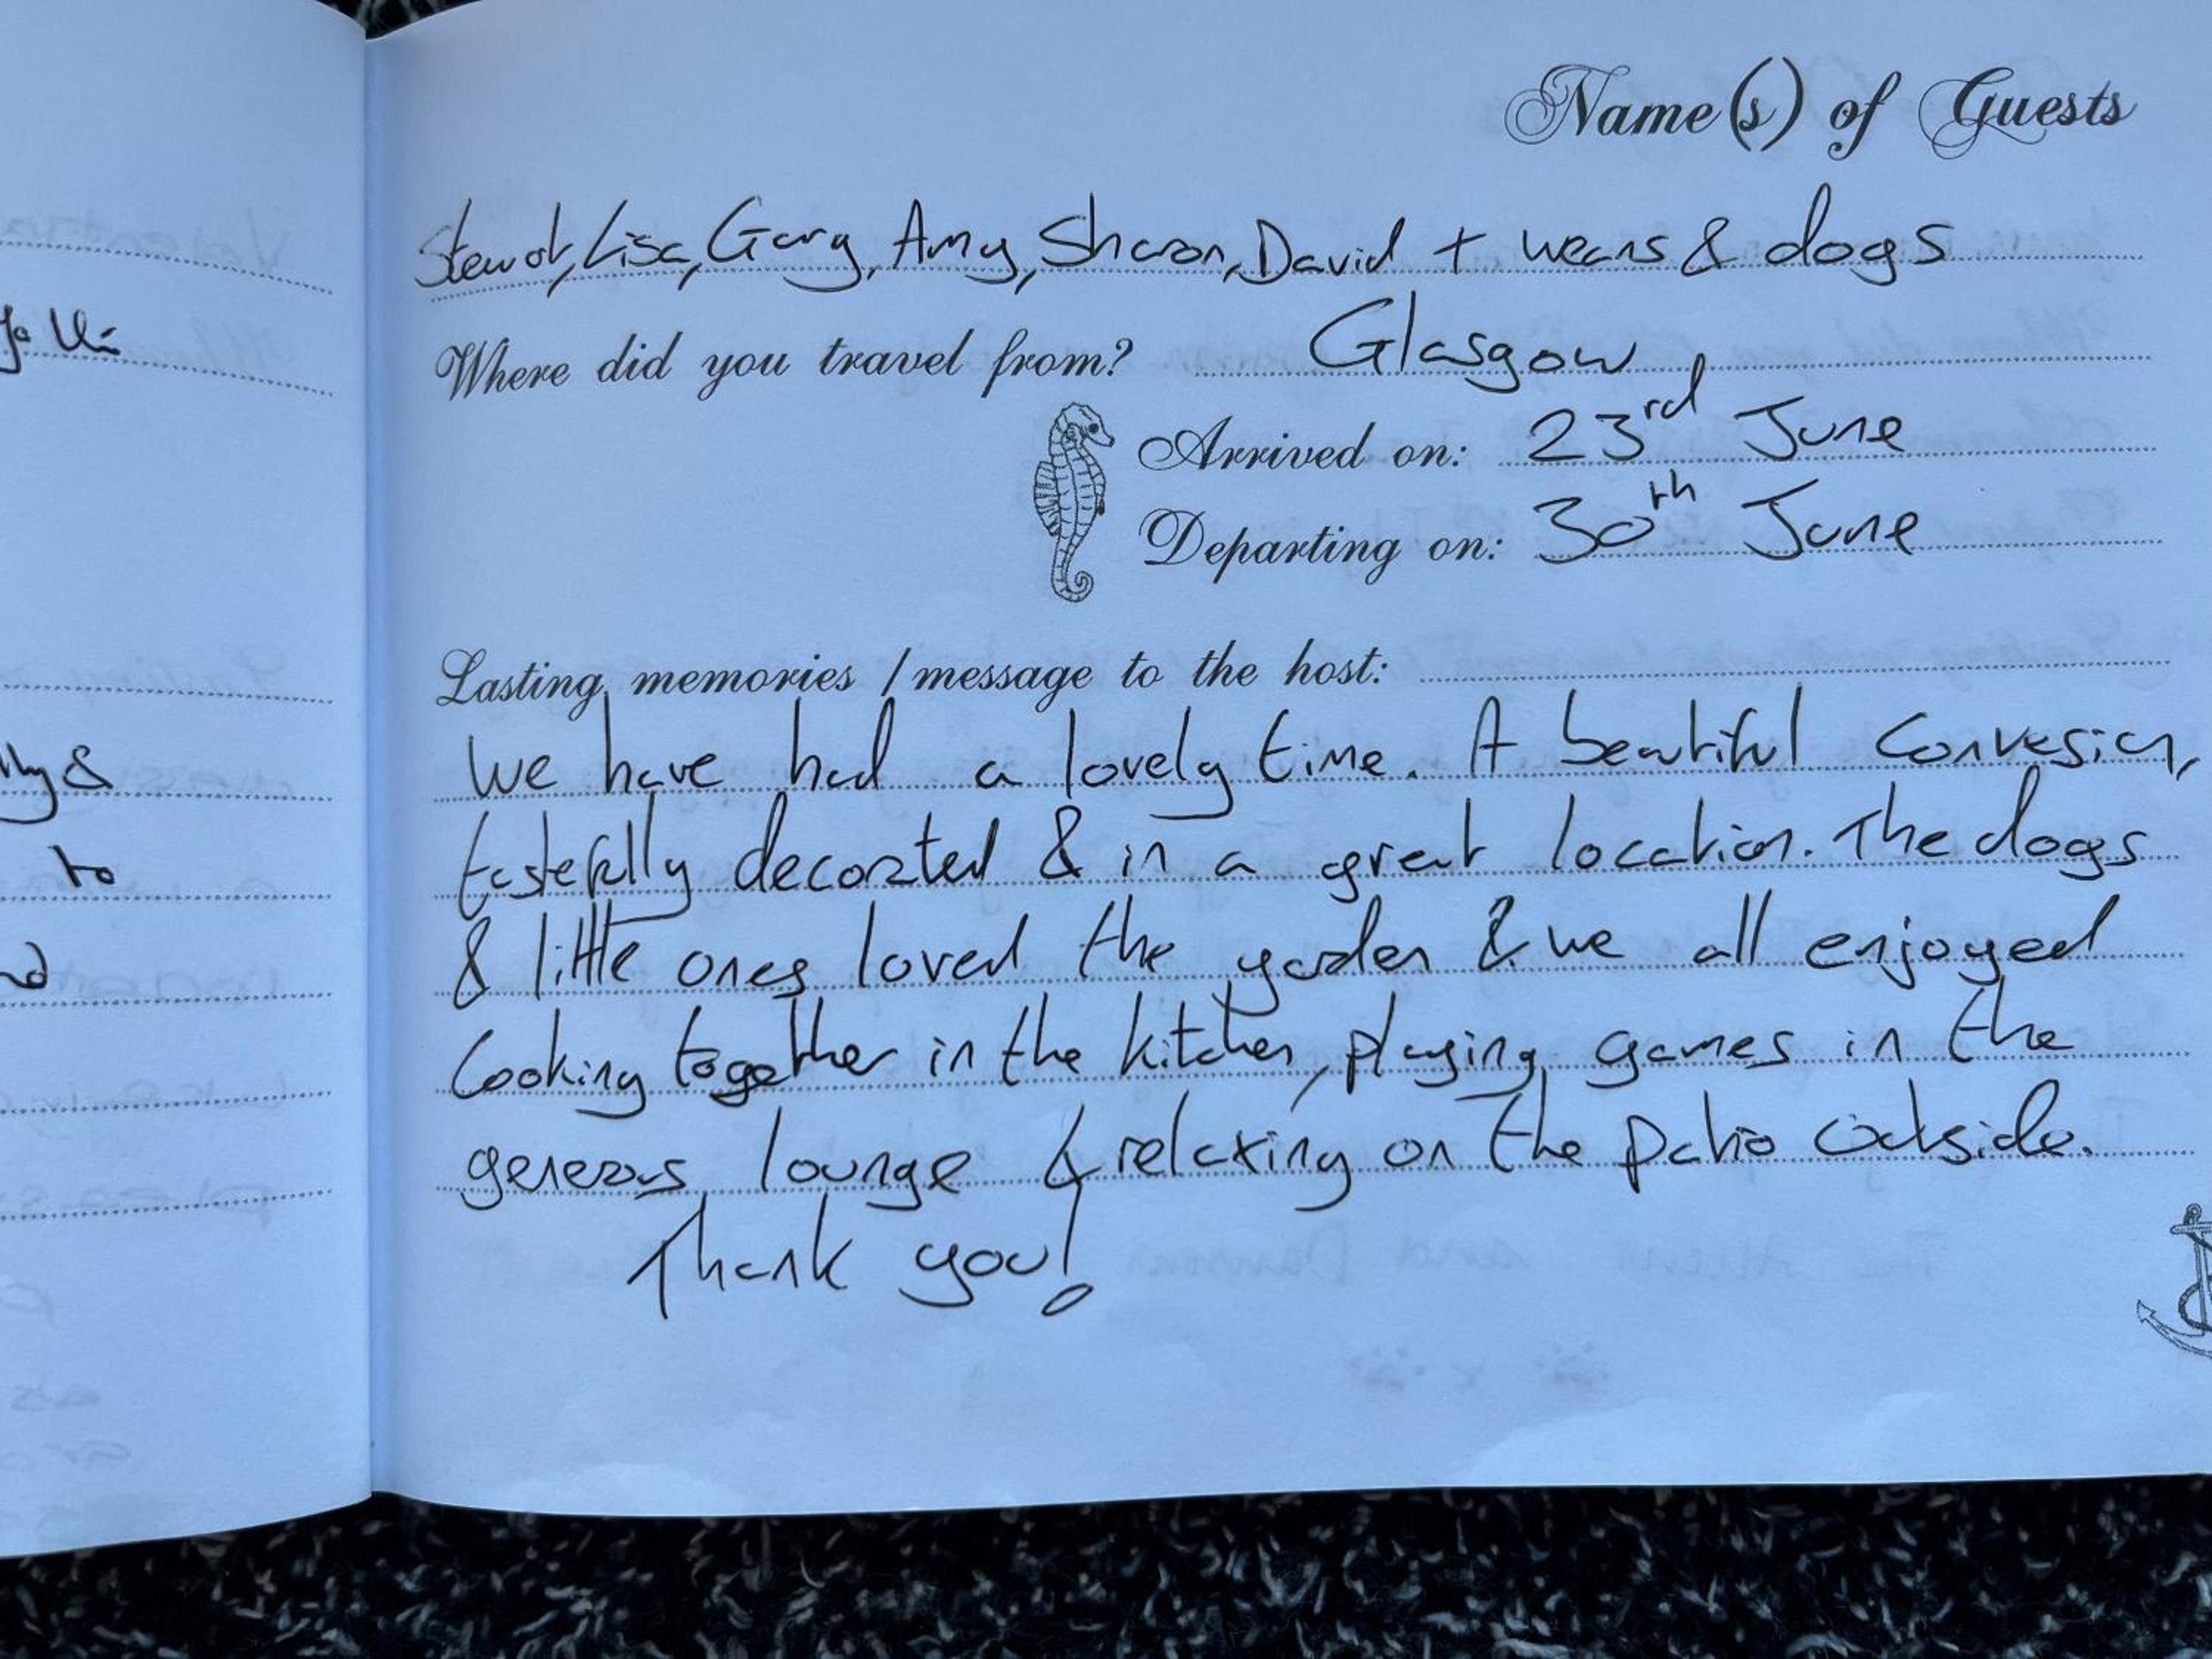 Name(s) of Guests
Stewart, Lisa, Gary, Amy, Sharon, David + weans & dogs
Where did you travel from? Glasgow
Arrived on: 23rd June
Departing on: 30th June
Lasting memories / message to the host:
We have had a lovely time. A beautiful conversion,
tastefully decorated & in a great location. The dogs
& little ones loved the garden & we all enjoyed
cooking together in the kitchen, playing games in the
generous lounge & relaxing on the patio outside.
Thank you!
to